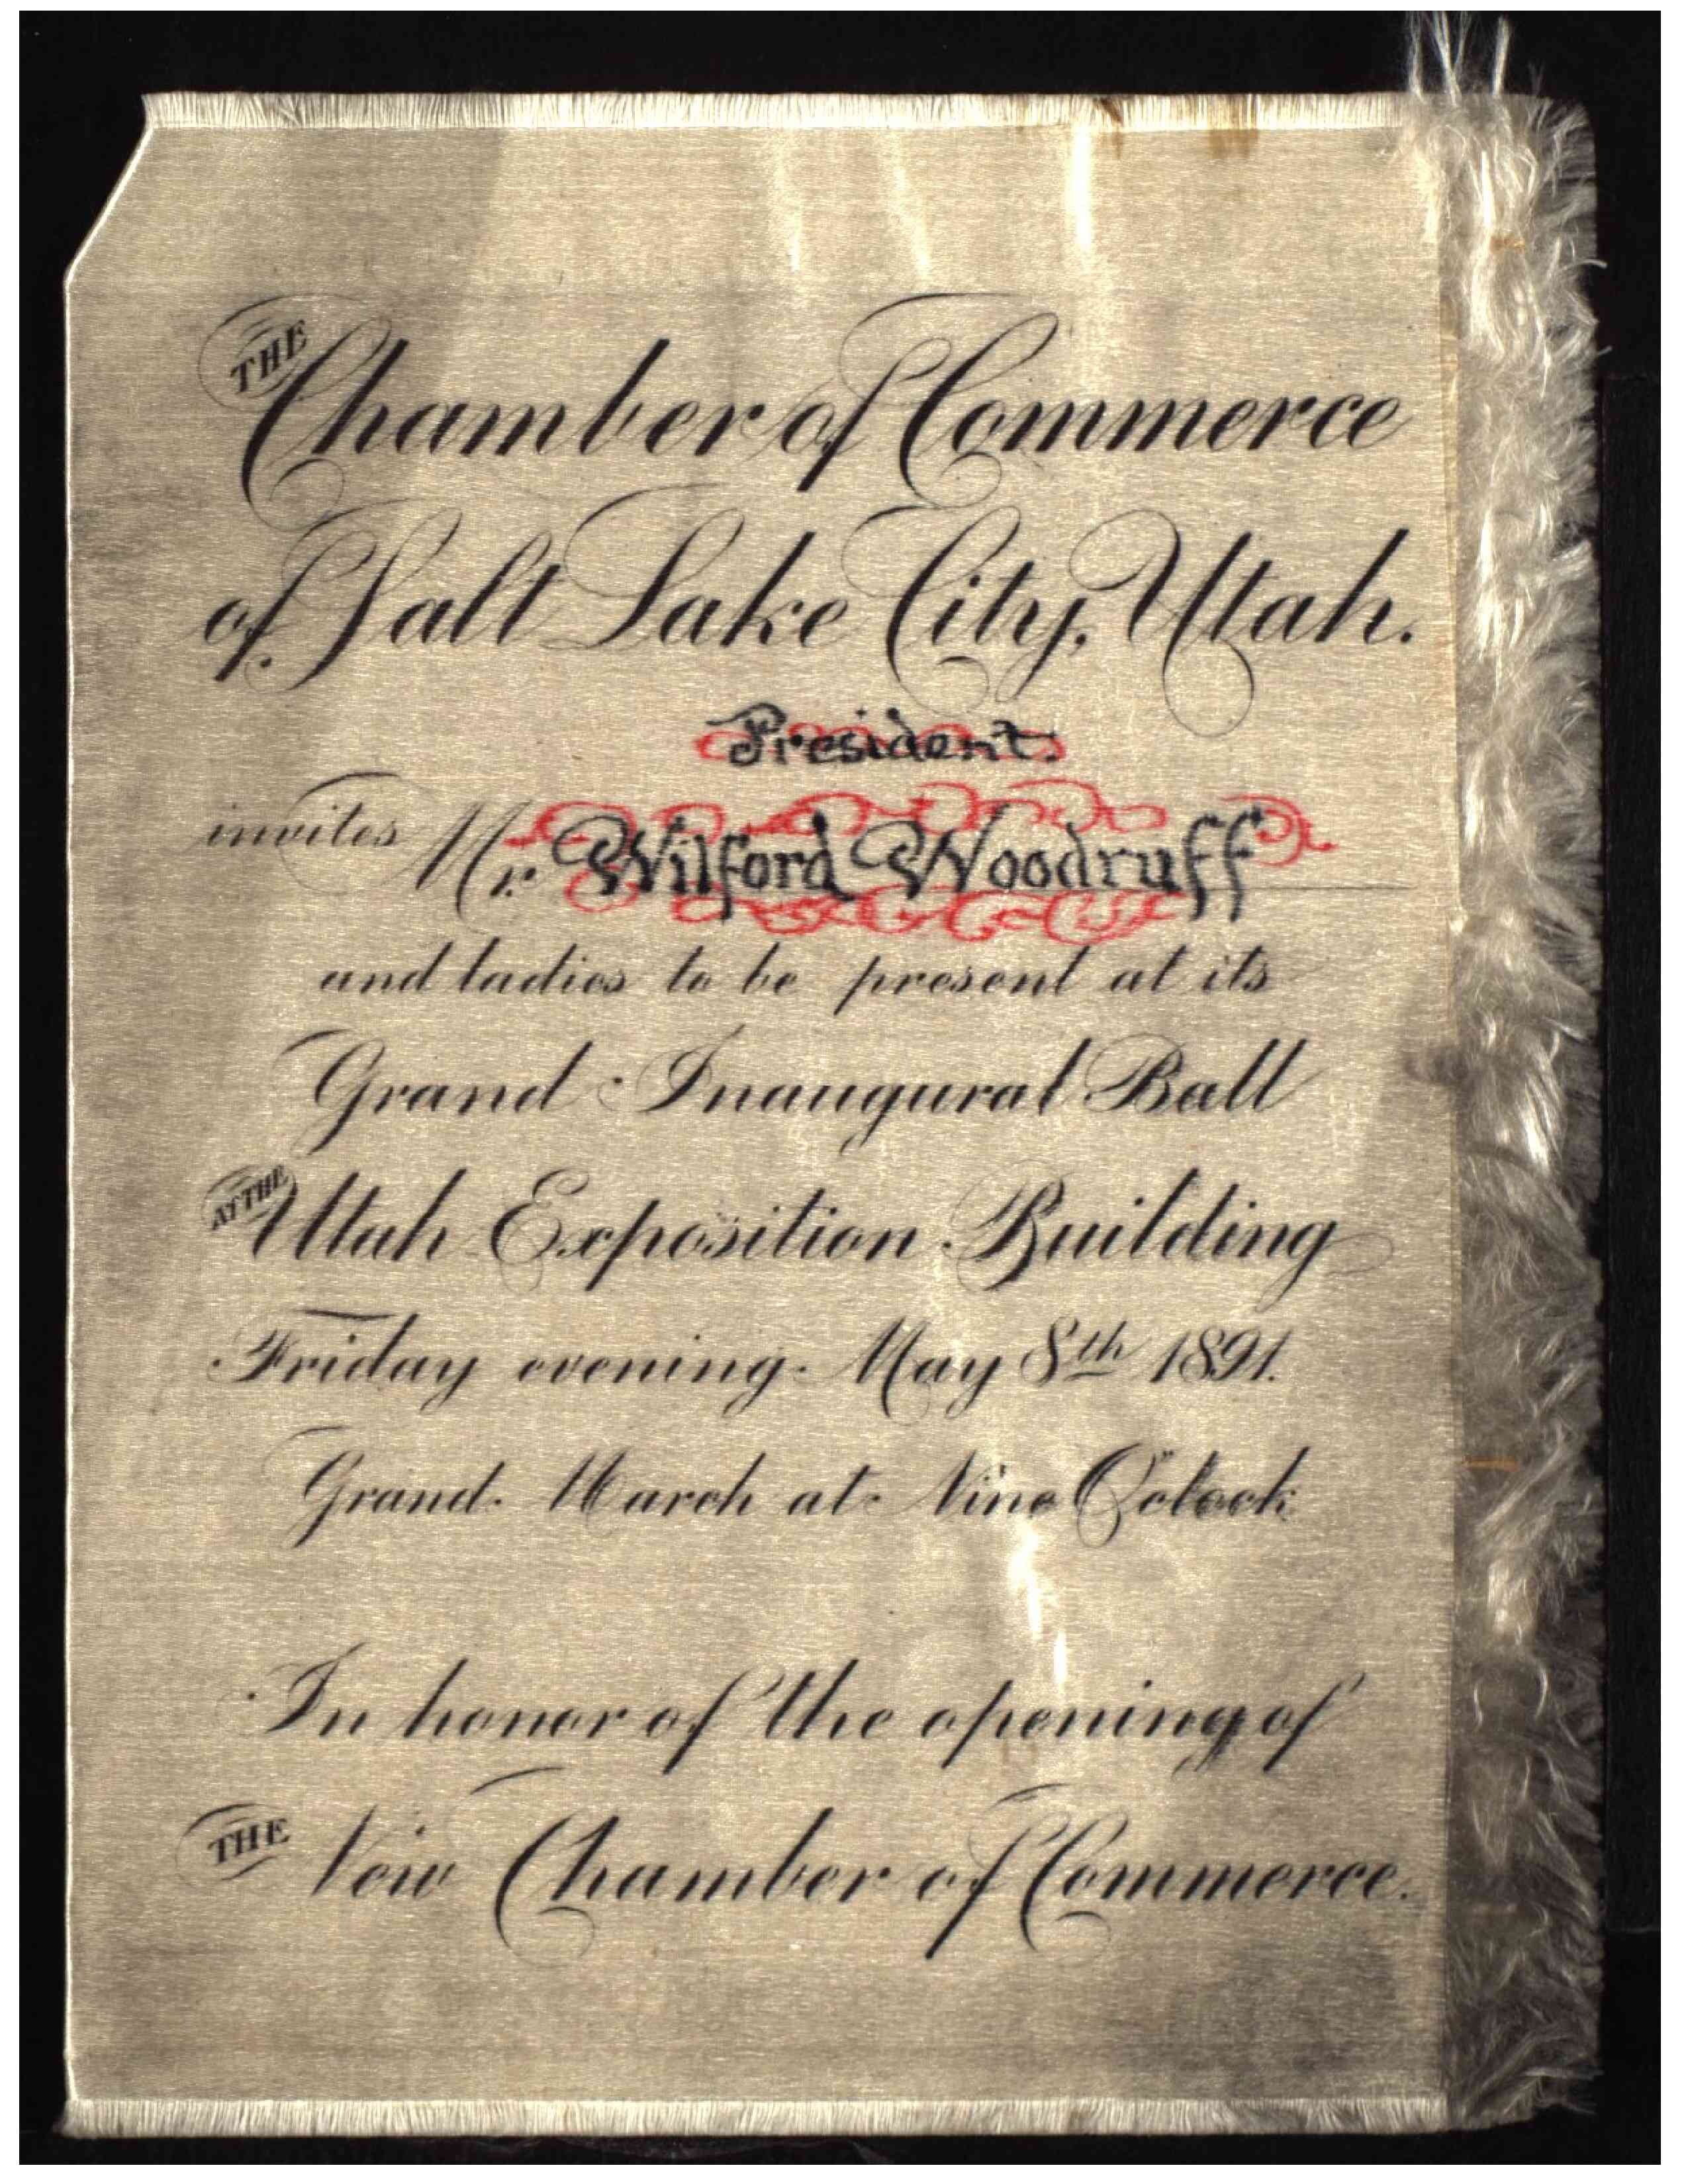 THE Chamber of Commerce
of Salt Lake City, Utah.
President.
invites Mr. Wilford Woodruff
and ladies to be present at its
Grand Inaugural Ball
AT THE Utah Exposition Building
Friday evening May 8th 1891.
Grand March at Nine O'clock
In honor of the opening of
THE New Chamber of Commerce.